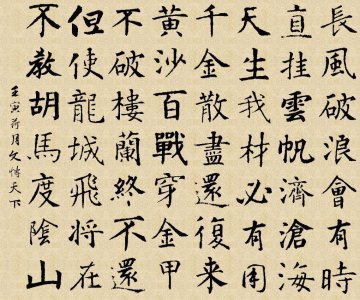 長風破浪會有時
直挂雲帆濟滄海
天生我材必有用
千金散盡還復来
黄沙百戰穿金甲
不破樓蘭終不還
但使龍城飛將在
不教胡馬度陰山
壬寅荷月文博天下